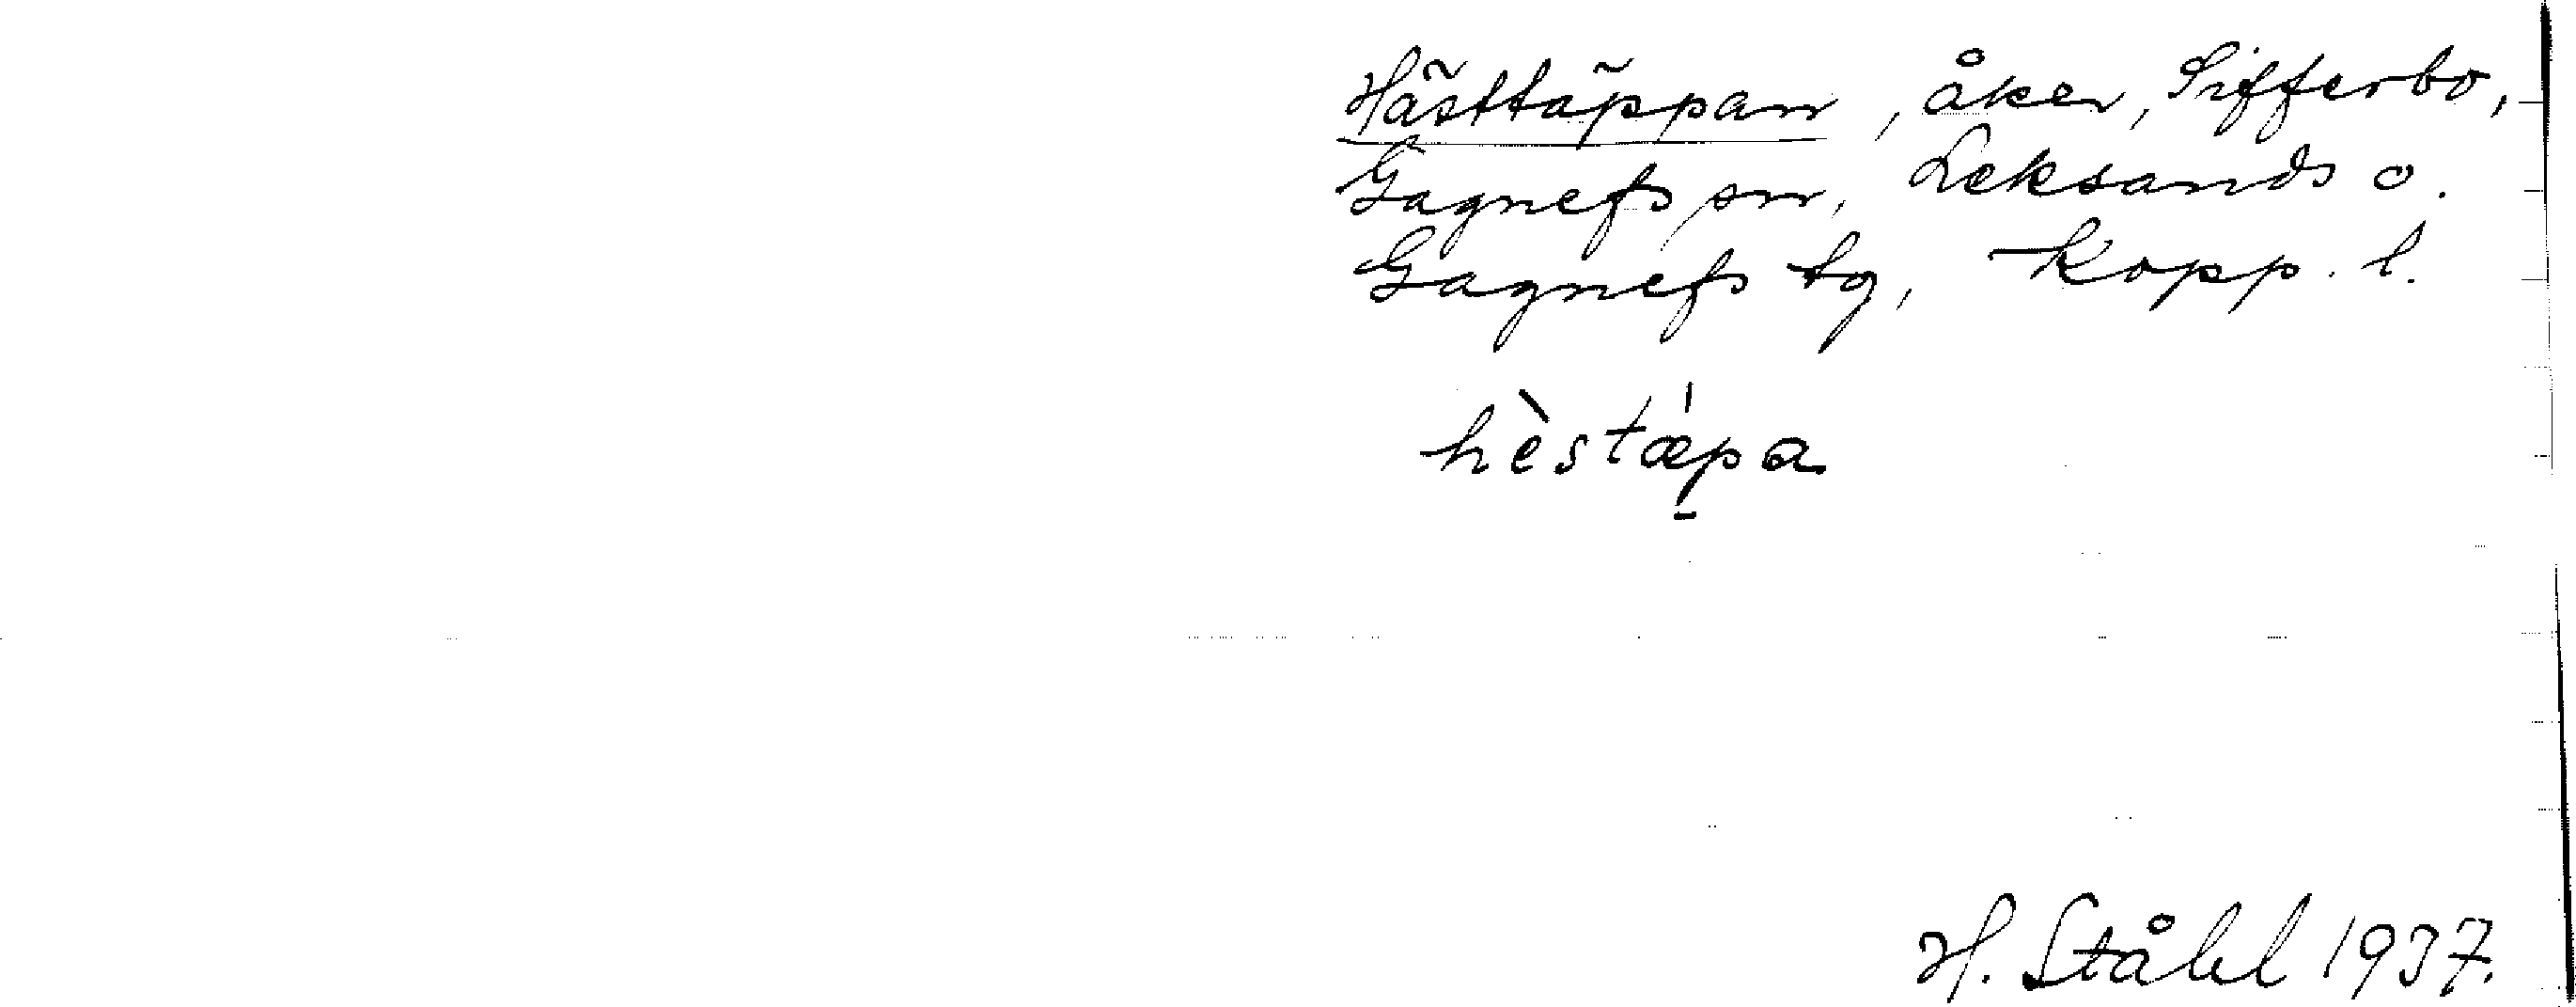 Hästtäppan, åker, Sifferbo,
Gagnefs sn, Leksands o.
Gagnefs tg, Kopp. l.
hèstæ̍p̱a
H. Ståhl 1937.